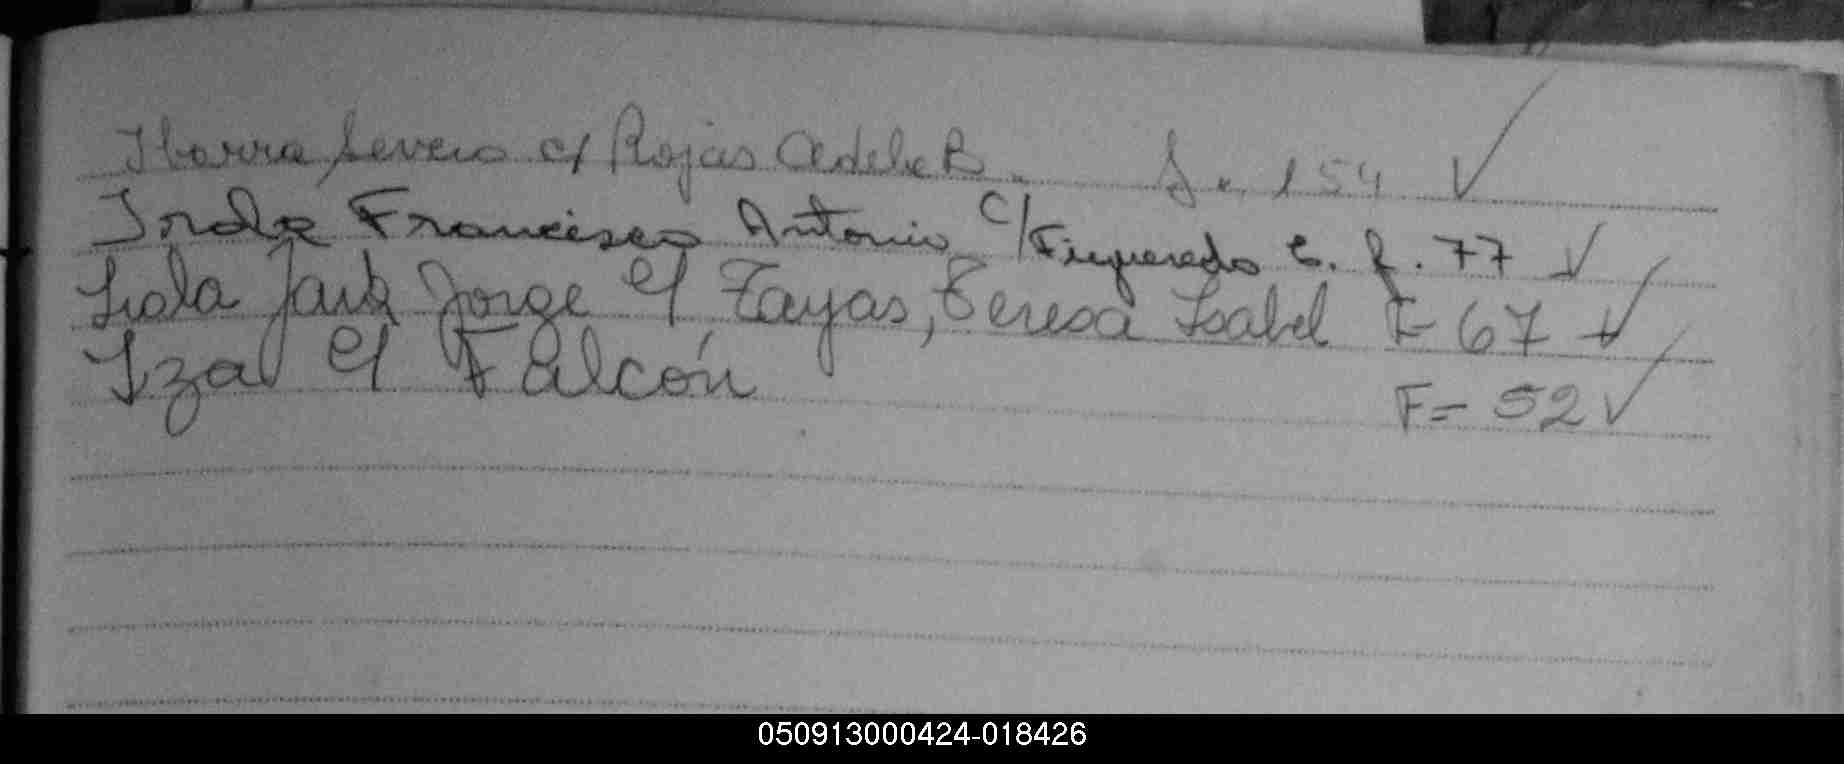 Ibarra Severo c/ Rojas Adela B. f. 154 ✓
Francisco Antonio c/ Figueredo E. f. 77 ✓
Jorge c/ Zayas, Teresa Isabel F= 67 ✓
Iza c/ Falcón F= 52 ✓
050913000424-018426